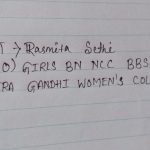 T → Rasmita Sethi
0) GIRLS BN NCC BBS
RA GANDHI WOMEN'S COL